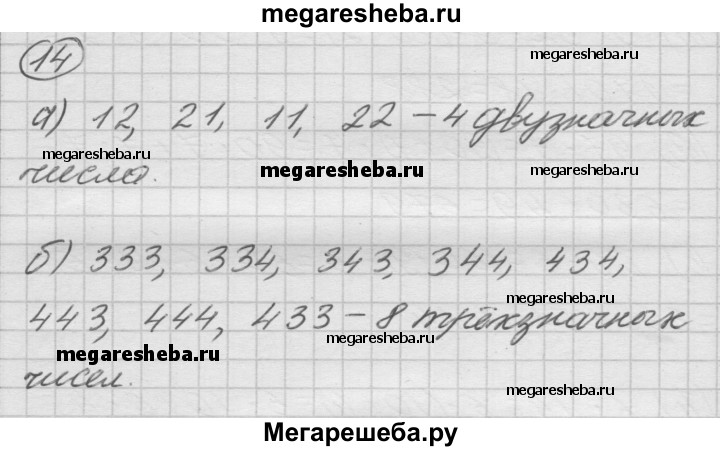 megaresheba.ru
14
megaresheba.ru
а) 12, 21, 11, 22 – 4 двузначных
megaresheba.ru
megaresheba.ru
megaresheba.ru
числа.
б) 333, 334, 343, 344, 434,
megaresheba.ru
443, 444, 433 – 8 трёхзначных
megaresheba.ru
megaresheba.ru
чисел.
megaresheba.ru
Мегарешеба.ру